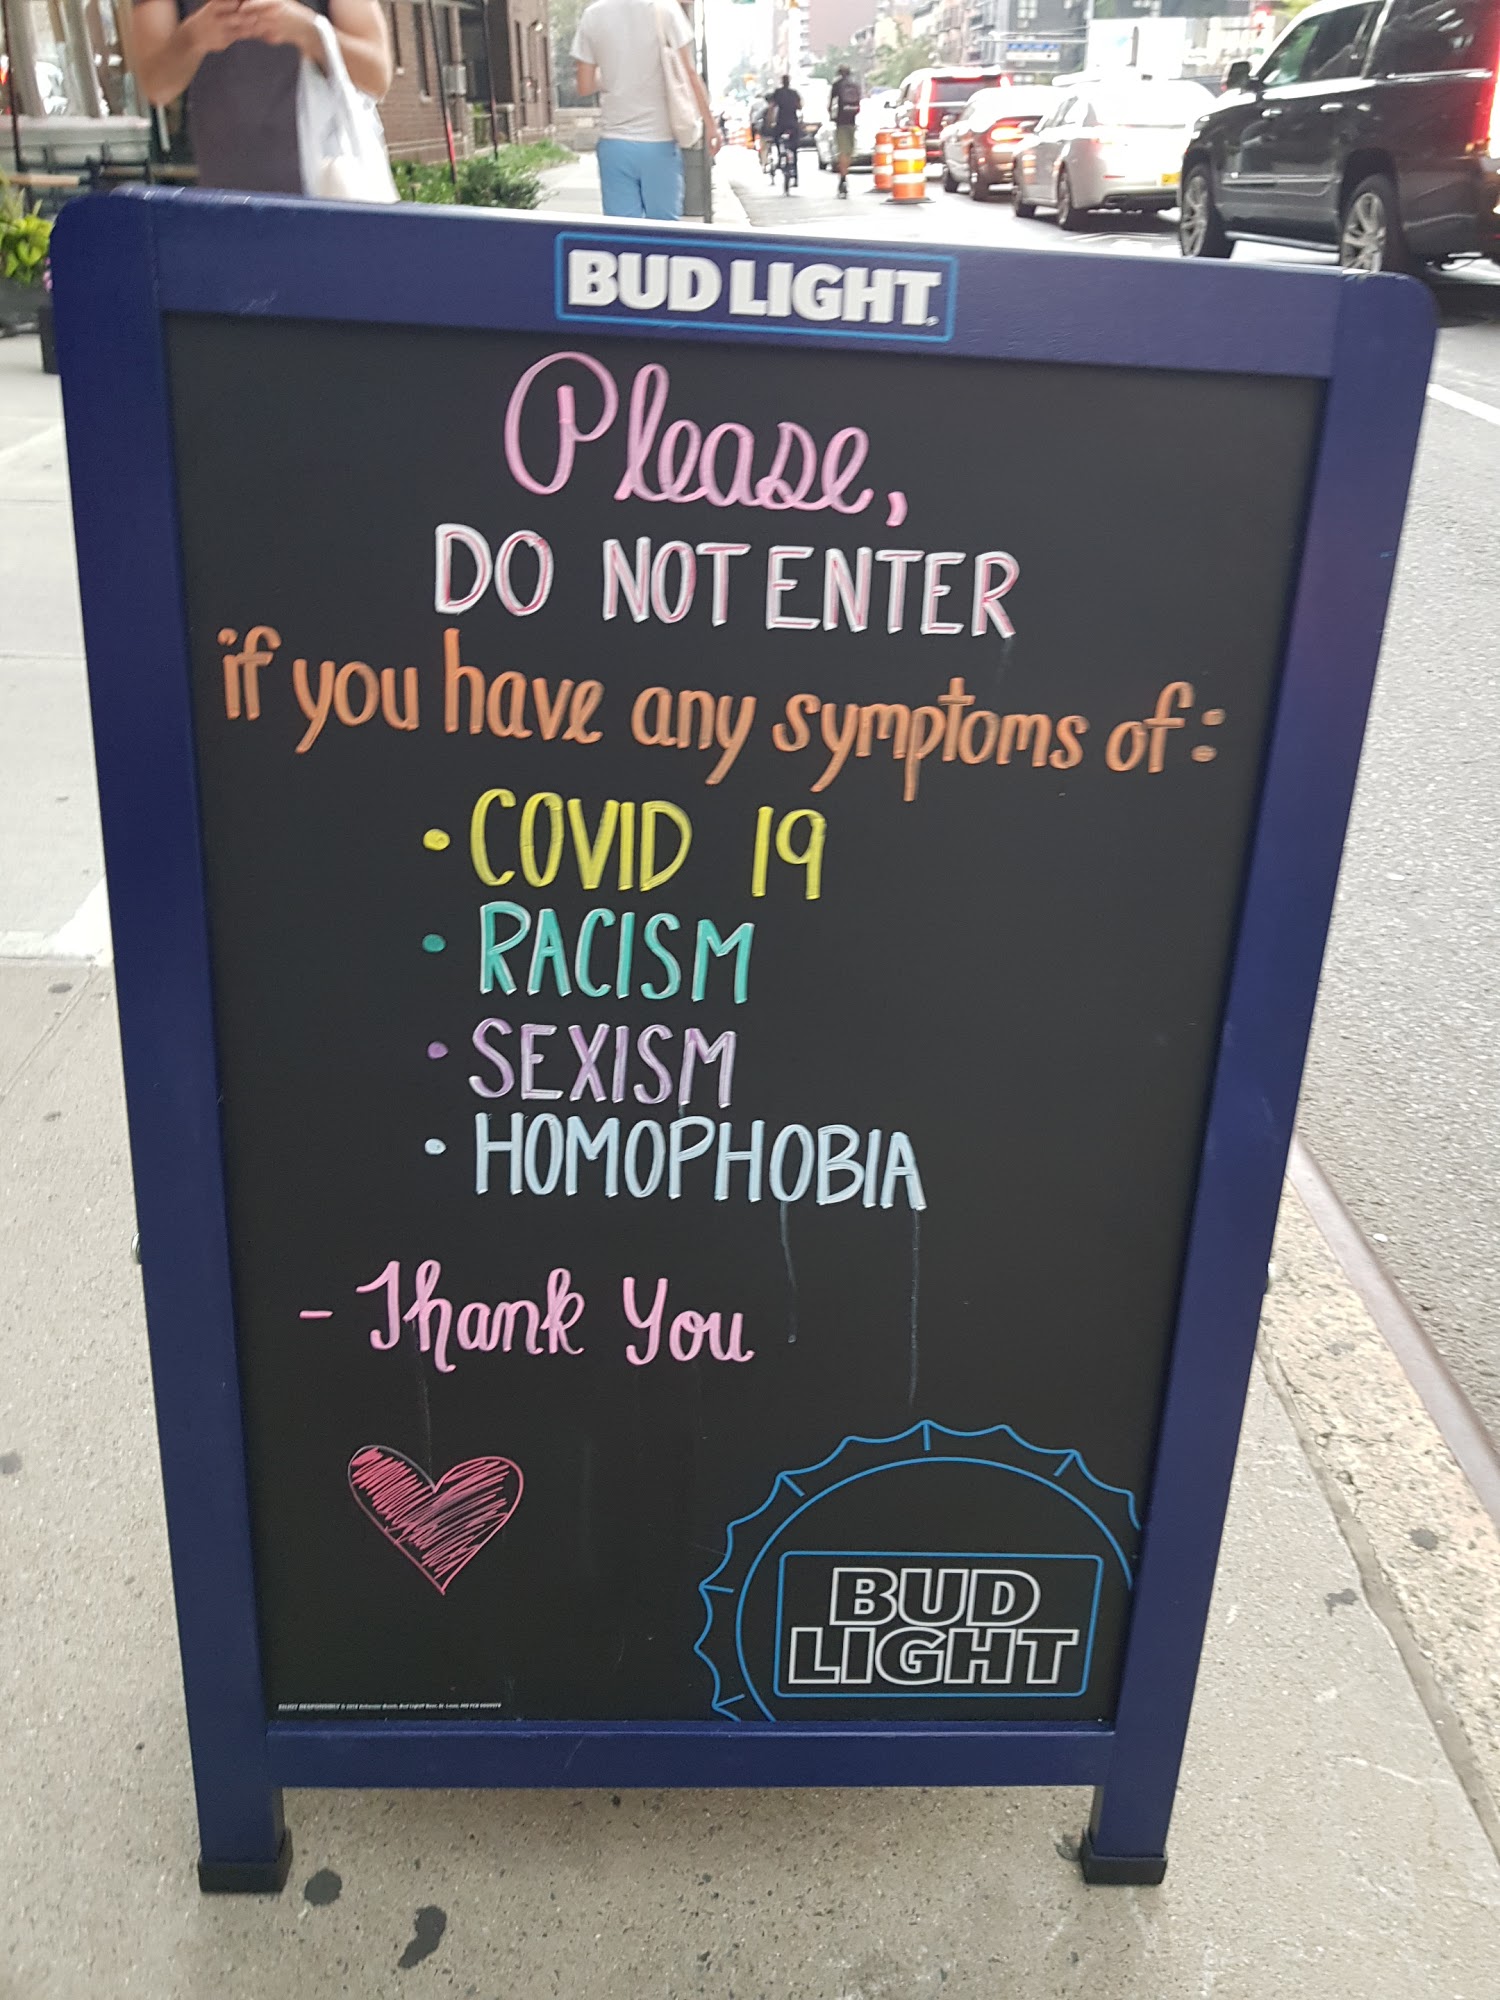 BUD LIGHT
Please,
DO NOT ENTER
if you have any symptoms of:
• COVID 19
• RACISM
• SEXISM
• HOMOPHOBIA
- Thank You
BUD
LIGHT